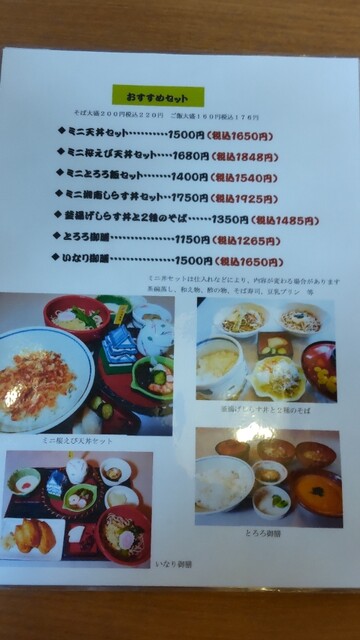 おすすめセット
そば大盛２００円税込２２０円　ご飯大盛１６０円税込１７６円
◆ミニ天丼セット…………1500円(税込1650円)
◆ミニ桜えび天丼セット……1680円(税込1848円)
◆ミニとろろ飯セット………1400円(税込1540円)
◆ミニ湘南しらす丼セット…1750円(税込1925円)
◆釜揚げしらす丼と2種のそば……1350円(税込1485円)
◆とろろ御膳………………1150円(税込1265円)
◆いなり御膳………………1500円(税込1650円)
ミニ丼セットは仕入れなどにより、内容が変わる場合があります
茶碗蒸し、和え物、酢の物、そば寿司、豆乳プリン　等
ミニ桜えび天丼セット
釜揚げしらす丼と2種のそば
とろろ御膳
いなり御膳